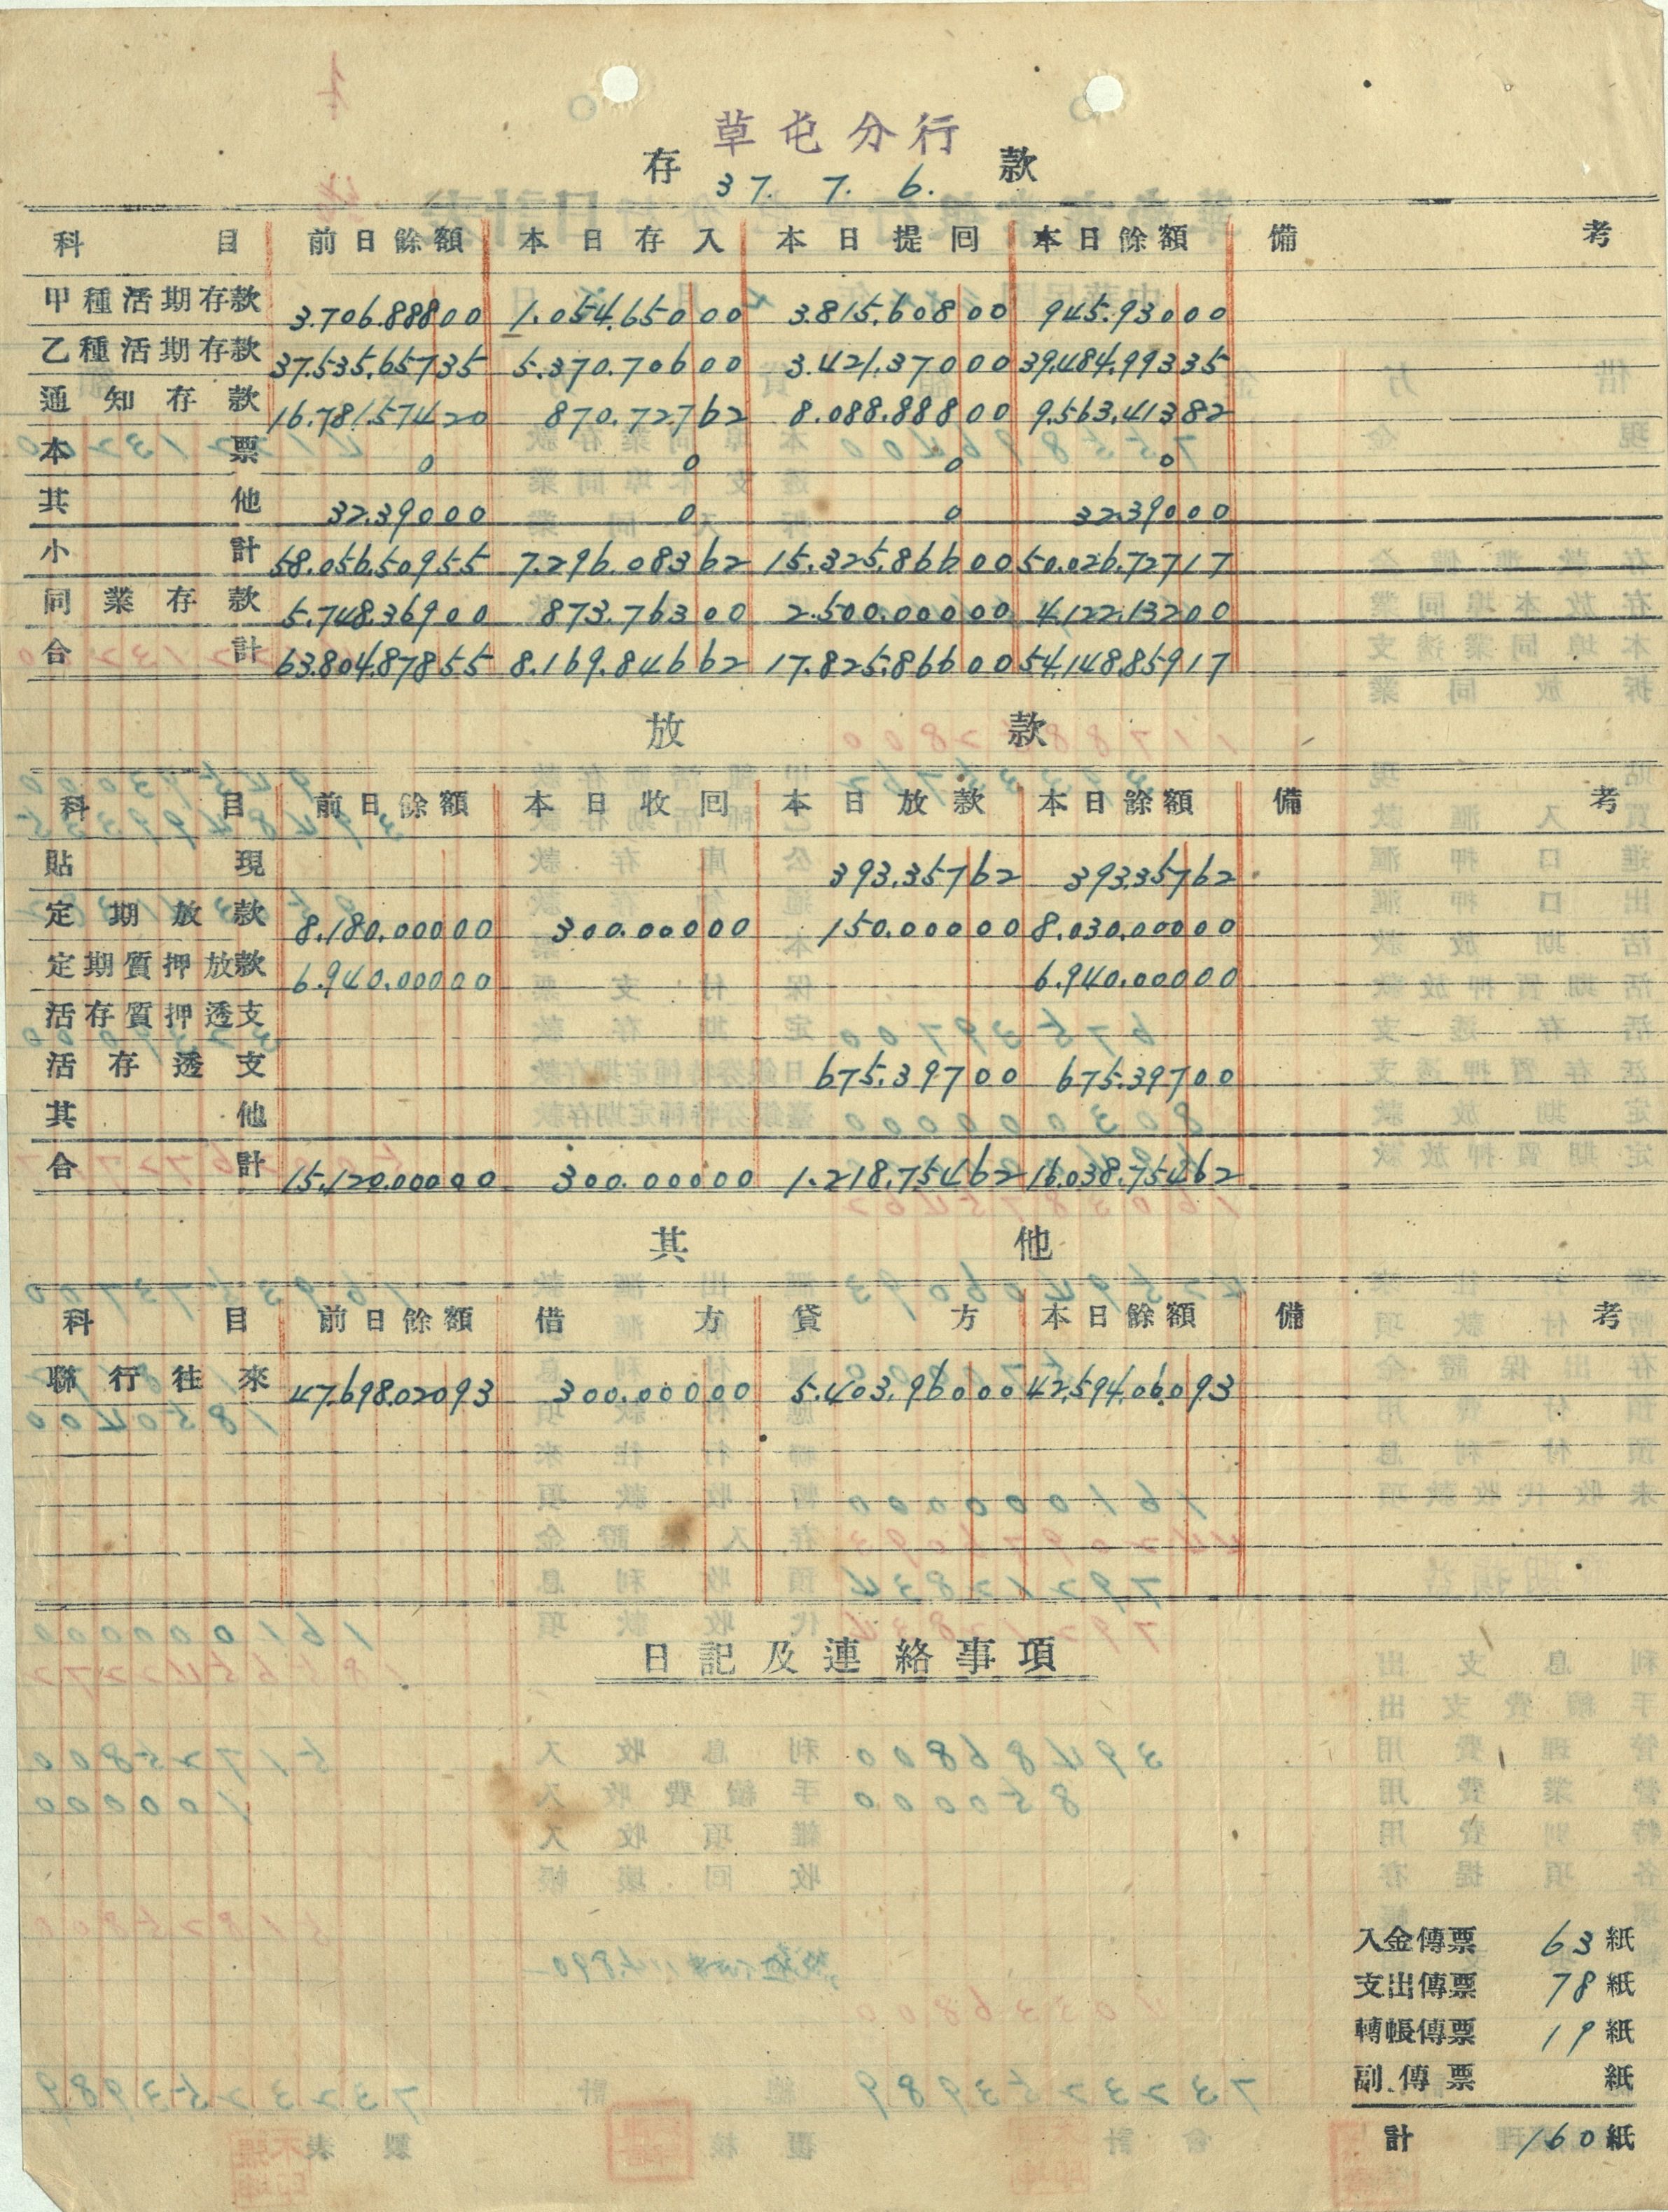 草屯分行
存 款
37. 7. 6.
科目 前日餘額 本日存入 本日提回 本日餘額 備考
甲種活期存款 3.706.88800 1.054.65000 3.815.60800 945.93000
乙種活期存款 37.535.65735 5.370.70600 3.421.37000 39.484.99335
通知存款 16.781.57420 870.72762 8.088.88800 9.563.41382
本票 0 0 0 0
其他 32.39000 0 0 32.39000
小計 58.056.50955 7.296.08362 15.325.86600 50.026.72717
同業存款 5.748.36900 873.76300 2.500.00000 4.122.13200
合計 63.804.87855 8.169.84662 17.825.86600 54.148.85917
放 款
科目 前日餘額 本日收回 本日放款 本日餘額 備考
貼現 393.35762 393.35762
定期放款 8.180.00000 300.00000 150.00000 8.030.00000
定期質押放款 6.940.00000 6.940.00000
活存質押透支
活存透支 675.39700 675.39700
其他
合計 15.120.00000 300.00000 1.218.75462 16.038.75462
其 他
科目 前日餘額 借方 貸方 本日餘額 備考
聯行往來 47.698.02093 300.00000 5.403.96000 42.594.06093
日記及連絡事項
入金傳票 63 紙
支出傳票 78 紙
轉帳傳票 19 紙
副傳票 紙
計 160 紙